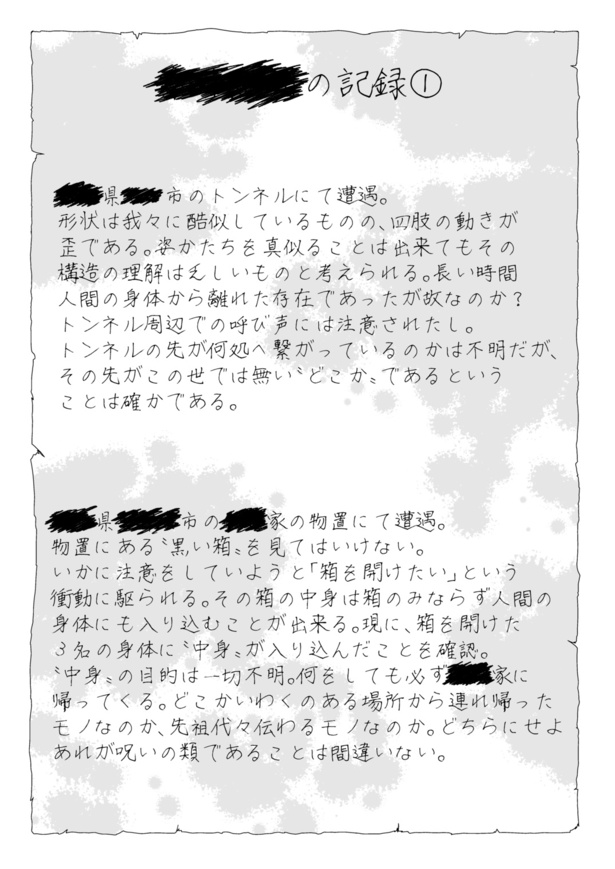 の記録①
県 市のトンネルにて遭遇。
形状は我々に酷似しているものの、四肢の動きが
歪である。姿かたちを真似ることは出来てもその
構造の理解は乏しいものと考えられる。長い時間
人間の身体から離れた存在であったが故なのか?
トンネル周辺での呼び声には注意されたし。
トンネルの先が何処へ繋がっているのかは不明だが、
その先がこの世では無い〝どこか〟であるという
ことは確かである。
県 市の 家の物置にて遭遇。
物置にある〝黒い箱〟を見てはいけない。
いかに注意をしていようと「箱を開けたい」という
衝動に駆られる。その箱の中身は箱のみならず人間の
身体にも入り込むことが出来る。現に、箱を開けた
3名の身体に〝中身〟が入り込んだことを確認。
〝中身〟の目的は一切不明。何をしても必ず 家に
帰ってくる。どこかいわくのある場所から連れ帰った
モノなのか、先祖代々伝わるモノなのか。どちらにせよ
あれが呪いの類であることは間違いない。